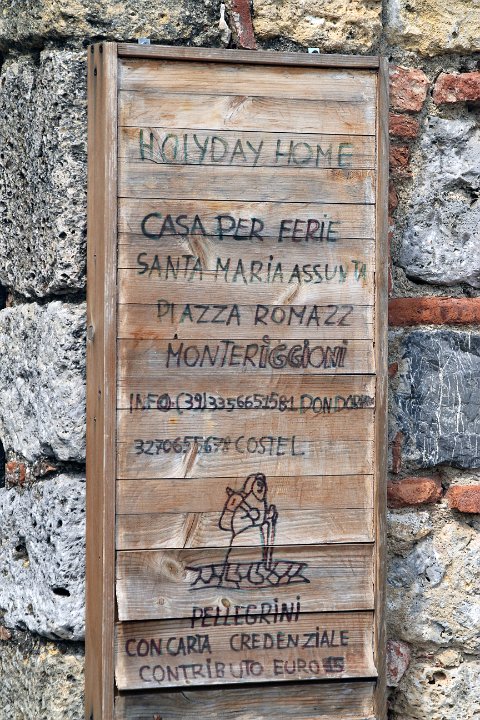 HOLYDAY HOME
CASA PER FERIE
SANTA MARIA ASSUNTA
PIAZZA ROMA 22
MONTERIGGIONI
INFO (39)3356651581
COSTEL
PELLEGRINI
CON CARTA CREDENZIALE
CONTRIBUTO EURO 15